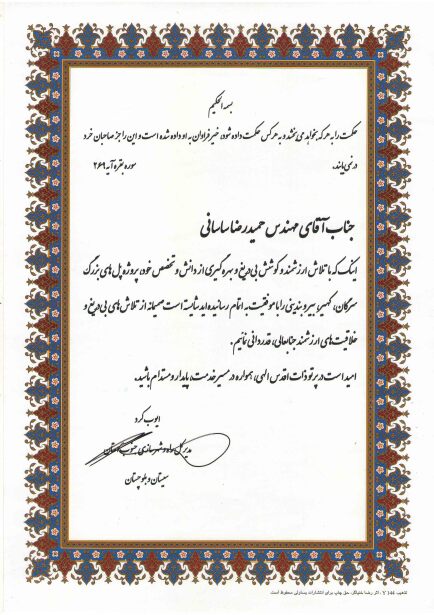 بسمه الحکیم
حکمت را به هر که بخواهد می بخشد و به هر کس حکمت داده شود، خیر فراوان به او داده شده است و این را جز صاحبان خرد
در نمی یابند. سوره بقره آیه ۲۶۹
جناب آقای مهندس حمیدرضا ساسانی
اینک که با تلاش ارزشمند و کوشش بی دریغ و بهره گیری از دانش و تخصص خود، پروژه پل های بزرگ
سرگان، کهیر، بیر و بندینی را با موفقیت به اتمام رسانیده اید شایسته است صمیمانه از تلاش های بی دریغ و
خلاقیت های ارزشمند جنابعالی، قدردانی نمائیم.
امید است در پرتو ذات اقدس الهی، همواره در مسیر خدمت، پایدار و مستدام باشید.
ایوب کرد
مدیر کل راه و شهرسازی جنوب استان
سیستان و بلوچستان
تذهیب Y 144 ، اثر رضا خلیلگر، حق چاپ برای انتشارات یساولی محفوظ است